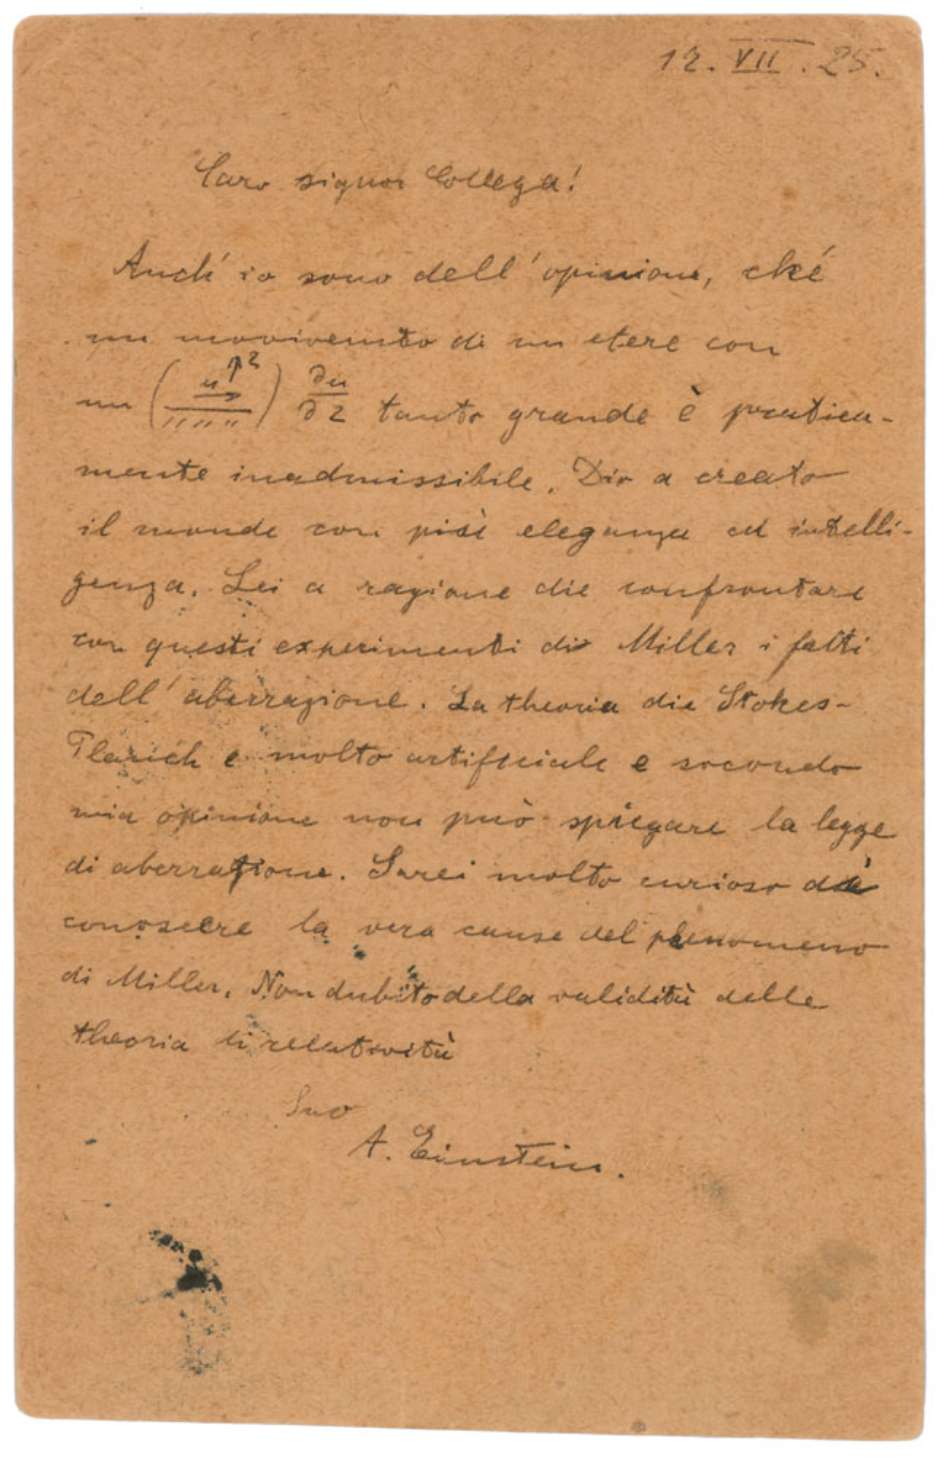 12. VII. 25.
Caro signor Collega!
Anch' io sono dell' opinione, ché
un movivento di un etere con
un ( u z ) ∂u/∂z tanto grande è pratica-
mente inadmissibile. Dio a creato
il monde con più eleganza ed intelli-
genza. Lei a ragione die confrontare
con questi experimenti di Miller i fatti
dell' aberrazione. La theoria die Stokes-
Planck e molto artificiale e secondo
mia opinione non può spiegare la legge
di aberratione. Sarei molto curioso di
conoscere la vera cause del phenomeno
di Miller. Non dubito della validità delle
theoria di relatività
Suo
A. Einstein.